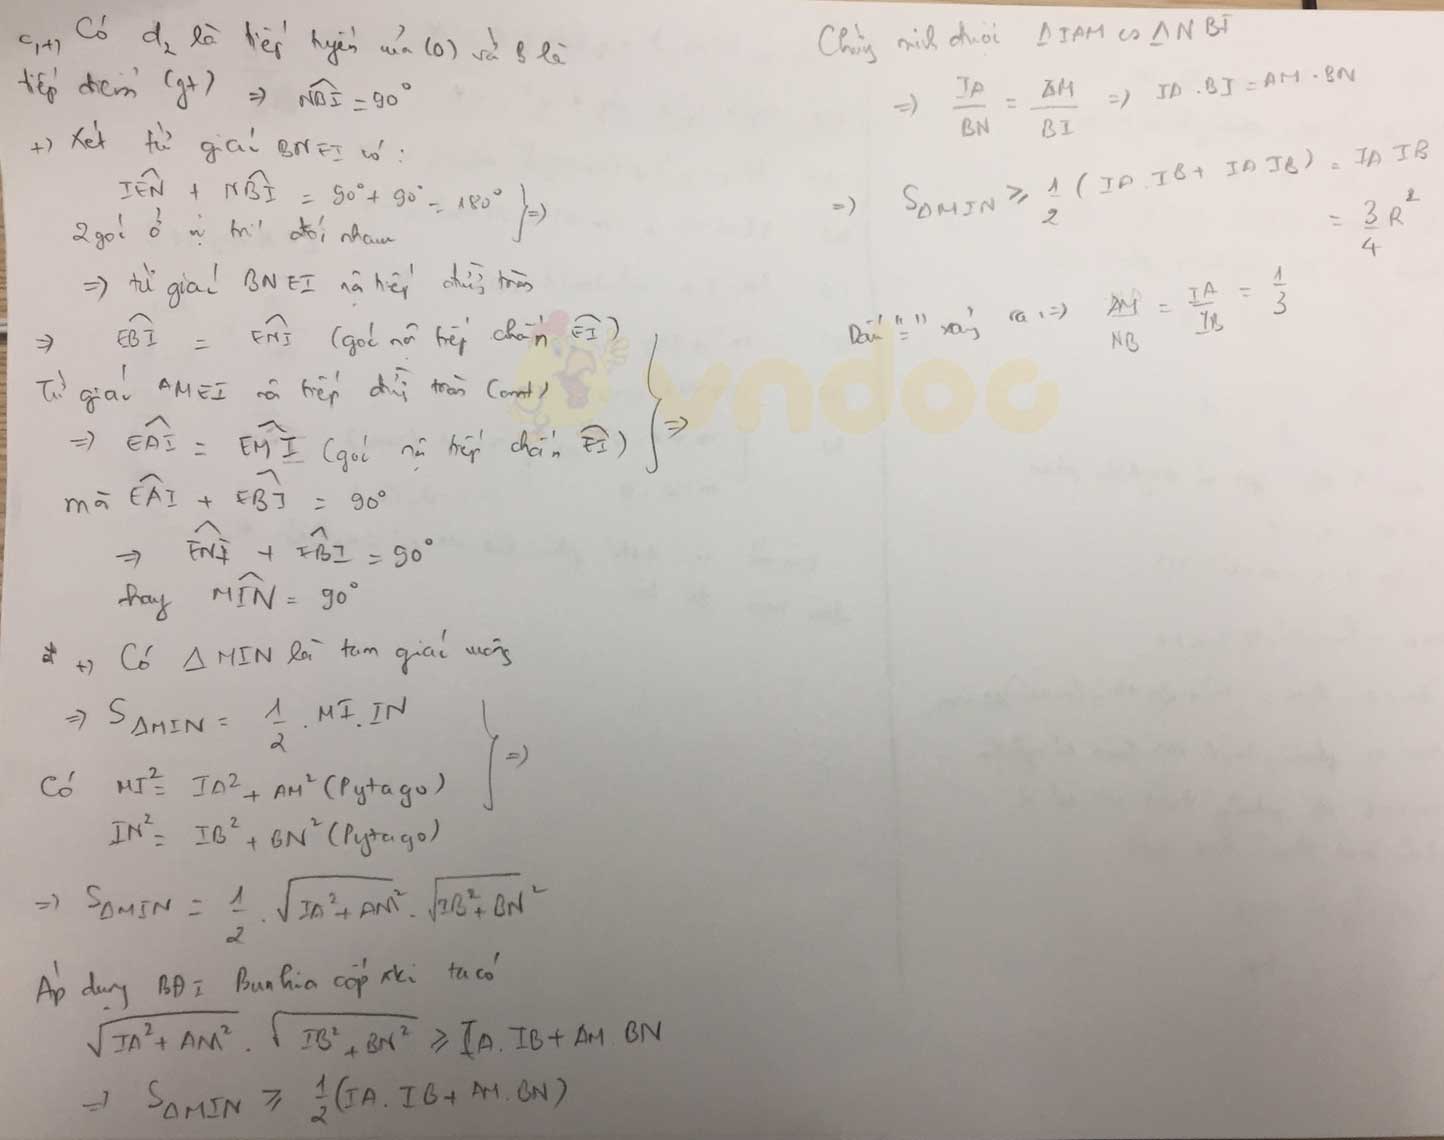 c, +) Có d₂ là tiếp tuyến của (O) và B là
tiếp điểm (gt) => NBI = 90°
+) Xét tứ giác BNEI có:
IEN + NBI = 90° + 90° = 180° } =>
2 góc ở vị trí đối nhau
=> tứ giác BNEI nội tiếp đường tròn
=> EBI = ENI (góc nội tiếp chắn EI)
Tứ giác AMEI nội tiếp đường tròn (cmt) } =>
=> EAI = EMI (góc nội tiếp chắn EI)
mà EAI + EBI = 90°
=> ENI + EBI = 90°
hay MIN = 90°
+) Có ΔMIN là tam giác vuông
=> SΔMIN = 1/2 . MI . IN
Có MI² = IA² + AM² (Pytago) } =>
IN² = IB² + BN² (Pytago)
=> SΔMIN = 1/2 . √(IA² + AM²) . √(IB² + BN²)
Áp dụng BĐT Bunhia cốp xki ta có
√(IA² + AM²) . √(IB² + BN²) ≥ IA . IB + AM . BN
=> SΔMIN ≥ 1/2 (IA . IB + AM . BN)
Chứng minh được ΔIAM ∽ ΔNBI
=> IA/BN = AM/BI => IA . BI = AM . BN
=> SΔMIN ≥ 1/2 (IA . IB + IA IB) = IA IB
= 3/4 R²
Dấu "=" xảy ra => AM/NB = IA/IB = 1/3
vndoc